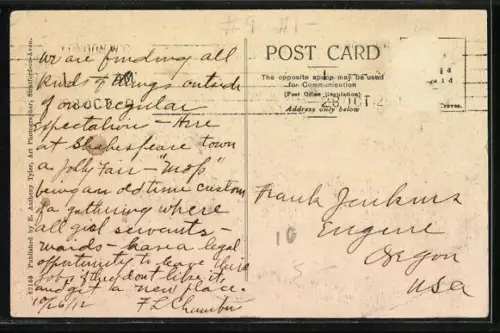 We are finding all
kinds of things outside
of our regular
expectation - Here
at Shakespeare town
a Jolly Fair - "Mop"
being an old time custom
a gathering where
all girl servants -
maids - have a legal
opportunity to leave their
jobs if they dont like it,
and get a new place.
10/26/12 F L Chambers
POST CARD
The opposite space may be used
for Communication
(Post Office Regulation)
Address only below
28 OCT
Frank Jenkins
Eugene
Oregon
USA
10
5
82163 Published by E. Anthony Tyler, Art Photographer, Stratford-on-Avon.